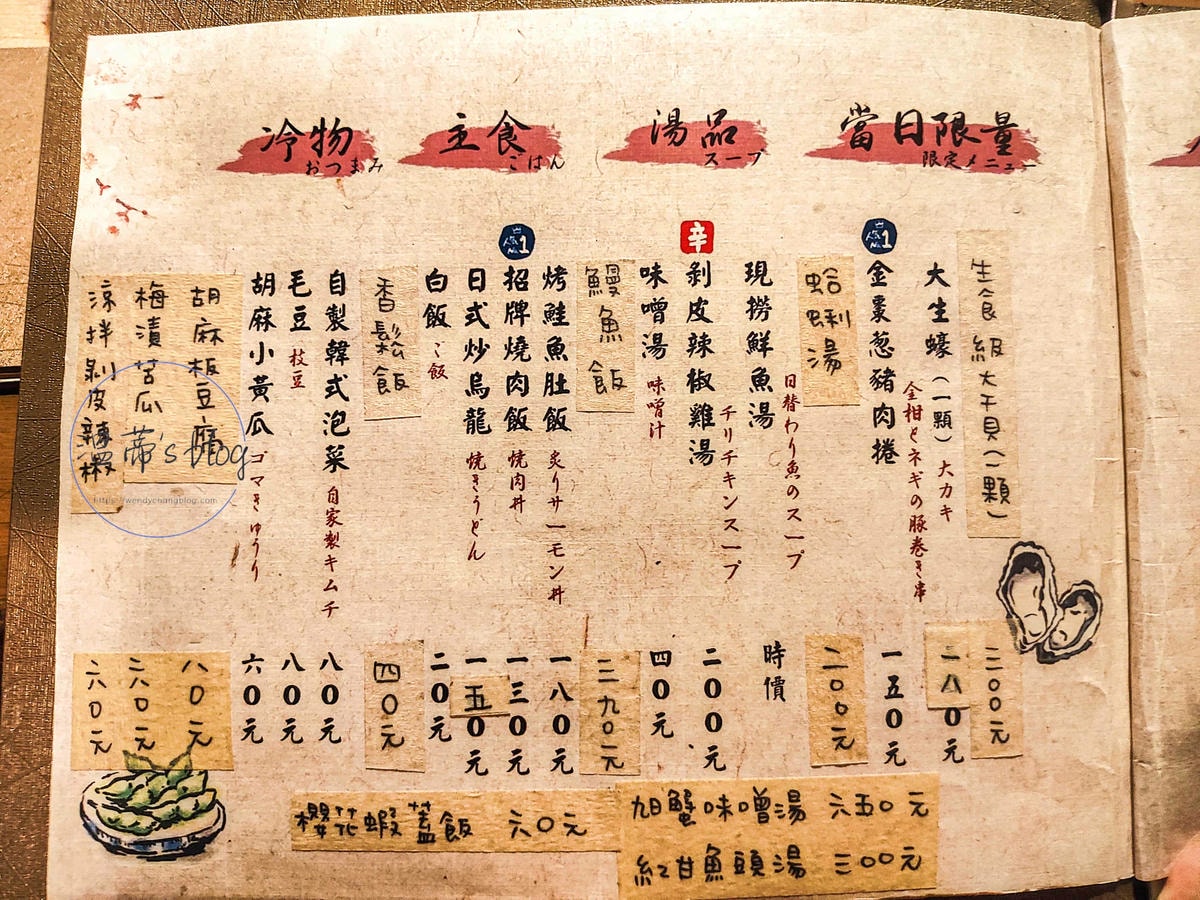 當日限量
限定メニュー
生食級大干貝(一顆)
三00元
大生蠔(一顆) 大カキ
二八0元
人気No.1
金棗葱豬肉捲
金柑とネギの豚巻き串
一五0元
蛤蜊湯
二00元
湯品
スープ
現撈鮮魚湯
日替わり魚のスープ
時價
辛
剝皮辣椒雞湯
チリチキンスープ
二00元
味噌湯 味噌汁
四0元
鰻魚飯
三九0元
主食
ごはん
烤鮭魚肚飯 炙りサーモン丼
一八0元
人気No.1
招牌燒肉飯 燒肉丼
一三0元
日式炒烏龍 焼きうどん
一五0元
白飯 ご飯
二0元
香鬆飯
四0元
冷物
おつまみ
自製韓式泡菜 自家製キムチ
八0元
毛豆 枝豆
八0元
胡麻小黃瓜 ゴマきゅうり
六0元
胡麻板豆腐
八0元
梅漬苦瓜
六0元
涼拌剝皮辣椒
六0元
櫻花蝦蓋飯 六0元
旭蟹味噌湯 六五0元
紅甘魚頭湯 三00元
蒂's blog
https://wendychangblog.com